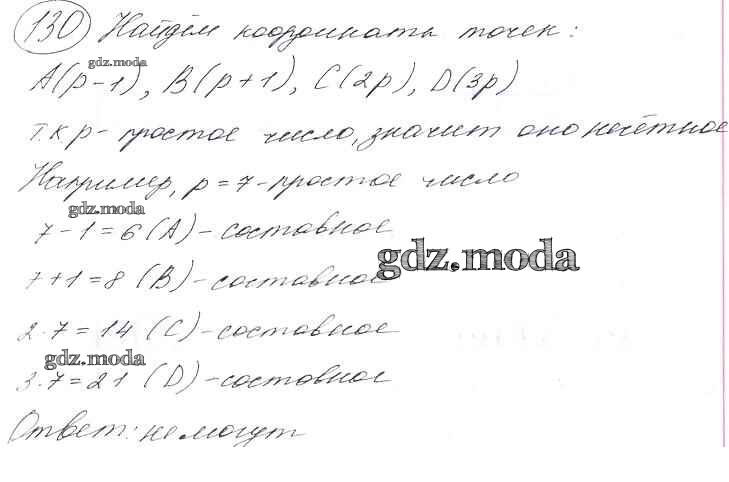 130 Найдём координаты точек:
gdz.moda
A(p-1), B(p+1), C(2p), D(3p)
т.к p- простое число, значит оно нечётное
Например, p = 7 - простое число
gdz.moda
7-1=6 (A) - составное
gdz.moda
7+1=8 (B) - составное
2·7=14 (C) - составное
gdz.moda
3·7=21 (D) - составное
Ответ: не могут